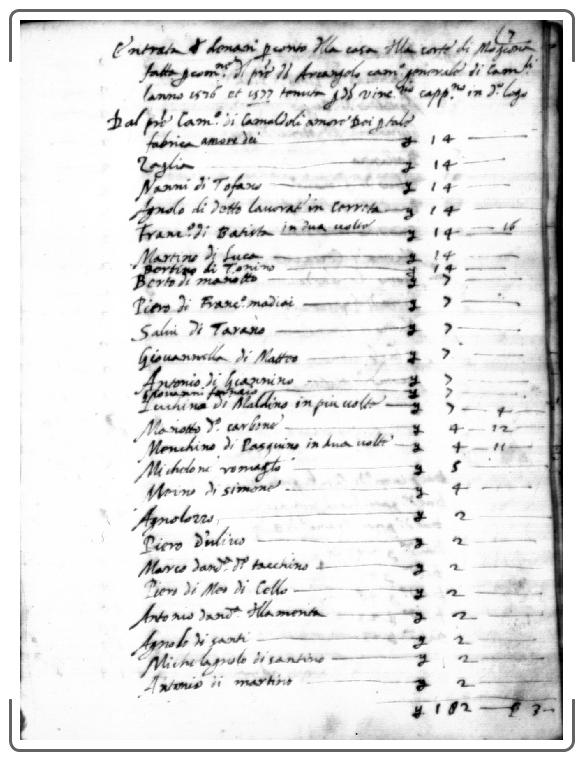 17
Entrata di denari p conto dlla casa dlla corte di Moscona
fatta p di pre d Arcangelo camo generale di Camli
lanno 1576 et 1577 tenuta p capp.no in do logo
Dal pre Camo di Camaldoli amore Dei p tale
fabrica amore dei 14
Zaglia 14
Nanni di Tofano 14
Agnolo di detto lavorat in Correta 14
Franco di Batista in dua volte 14 16
Martino di Luca 14
Bertino di Tonino 14
Berto di mariotto 7
Piero di Franco madiai 7
Salvi di Tarano 7
Giovannella di Matteo 7
Antonio di Giannino 7
Giovanni fornaio 7
Lucchina di Maldino in piu volte 7 4
Mariotto do carbone 4 12
Menchino di Pasquino in dua volte 4 11
Michelone romagLo 5
Meino di simone 4
Agnolozzo 2
Piero dulivo 2
Marco dando do tacchino 2
Piero di Meo di Cello 2
Antonio dando dlla menta 2
Agnolo di santi 2
Michelagnolo di santino 2
Antonio di martino 2
182 3